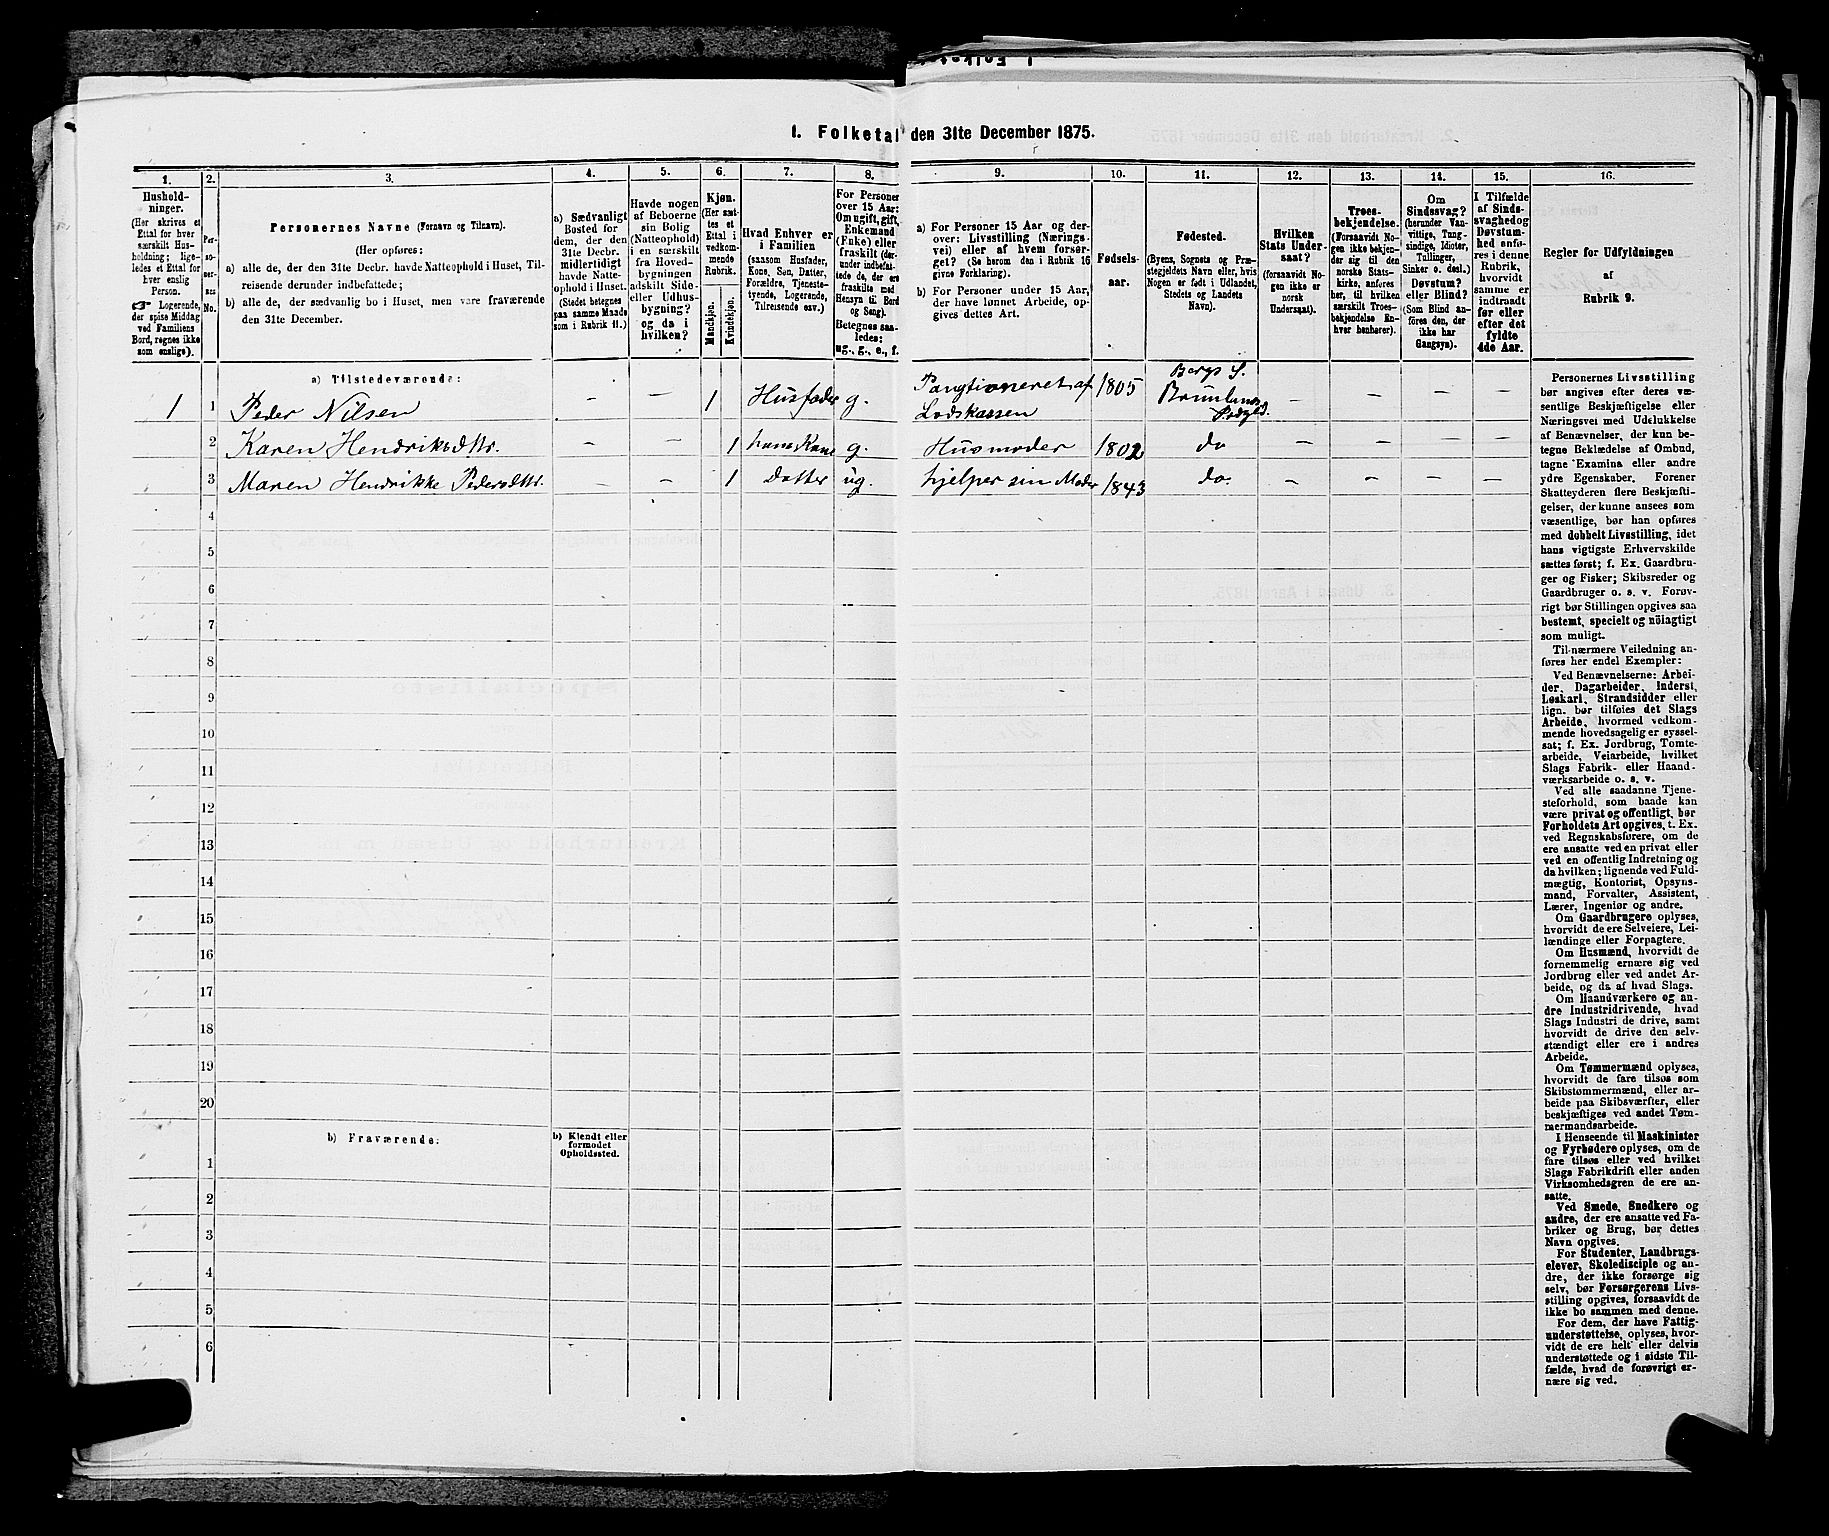 1. Folketal den 31te December 1875.
1.
2.
3.
4.
5.
6.
7.
8.
9.
10.
11.
12.
13.
14.
15.
16.
Hushold-
ninger.
(Her skrives et
Ettal for hver
særskilt Hus-
holdning; lige-
ledes et Ettal for
hver enslig
Person.
☞ Logerende,
der spise Middag
ved Familiens
Bord, regnes ikke
som enslige).
Per-
so-
ner-
nes
No.
Personernes Navne (Fornavn og Tilnavn).
(Her opføres:
a) alle de, der den 31te Decbr. havde Natteophold i Huset, Til-
reisende derunder indbefattede;
b) alle de, der sædvanlig bo i Huset, men vare fraværende
den 31te December.
a) Sædvanligt
Bosted for
dem, der den
31te Decbr.
midlertidigt
havde Natte-
ophold i Huset.
(Stedet betegnes
paa samme Maade
som i Rubrik 11.)
Havde nogen
af Beboerne
sin Bolig
(Natteophold)
i en særskilt
fra Hoved-
bygningen
adskilt Side-
eller Udhus-
bygning?
og da i
hvilken?
Kjøn.
(Her sæt-
tes et
Ettal i
vedkom-
mende
Rubrik.
Mandkjøn.
Kvindekjøn.
Hvad Enhver er
i Familien
(saasom Husfader,
Kone, Søn, Datter,
Forældre, Tjeneste-
tyende, Logerende,
Tilreisende osv.)
For Personer
over 15 Aar:
Om ugift, gift,
Enkemand
(Enke) eller
fraskilt (der-
under indbefat-
tede de, der ere
fraskilte med
Hensyn til Bord
og Seng).
Betegnes saa-
ledes:
ug., g., e., f.
a) For Personer 15 Aar og der-
over: Livsstilling (Nærings-
vei) eller af hvem forsør-
get? (Se herom den i Rubrik 16
givne Forklaring).
b) For Personer under 15 Aar,
der have lønnet Arbeide, op-
gives dettes Art.
Fødsels-
aar.
Fødested.
(Byens, Sognets og Præ-
stegjeldets Navn eller, hvis
Nogen er født i Udlandet,
Stedets og Landets
Navn).
Hvilken
Stats Under-
saat?
(forsaavidt No-
gen ikke er
norsk
Undersaat).
Troes-
bekjendelse.
(Forsaavidt No-
gen ikke bekjen-
der sig til den
norske Stats-
kirke, anføres
her, til hvilken
særskilt Troes-
bekjendelse En-
hver henhører).
Om
Sindssvag?
(herunder Van-
vittige, Tung-
sindige, Idioter,
Tullinger,
Sinker o. desl.)
Døvstum?
eller Blind?
(Som Blind an-
føres den, der
ikke har
Gangsyn).
I Tilfælde
af Sinds-
svaghed og
Døvstum-
hed anfø-
res i denne
Rubrik,
hvorvidt
samme er
indtraadt
før eller
efter det
fyldte
4de Aar.
Regler for Udfyldningen
af
Rubrik 9.
a) Tilstedeværende:
1 1 Peder Nilsen — — 1 Husfader g. Pangtioneret af Lodskassen 1805 Bergs S. Brunlanes Prstgjd. — — — —
2 Karen Hendriksdttr. — — 1 hans Kone g. Husmoder 1802 do — — — —
3 Maren Hendrikke Pedersdttr. — — 1 Datter ug. hjelper sin Moder 1843 do — — — —
4
5
6
7
8
9
10
11
12
13
14
15
16
17
18
19
20
b) Fraværende:
b) Kjendt eller
formodet
Opholdssted.
1
2
3
4
5
6
Personernes Livsstilling
bør angives efter deres væ-
sentlige Beskjæftigelse eller
Næringsvei med Udelukkelse
af Benævnelser, der kun be-
tegne Beklædelse af Ombud,
tagne Examina eller andre
ydre Egenskaber. Forener
Skatteyderen flere Beskjæfti-
gelser, der kunne ansees som
væsentlige, bør han opføres
med dobbelt Livsstilling, idet
hans vigtigste Erhvervskilde
sættes først; f. Ex. Gaardbru-
ger og Fisker; Skibsreder og
Gaardbruger o. s. v. Forøv-
rigt bør Stillingen opgives saa
bestemt, specielt og nöiagtigt
som muligt.
Til nærmere Veiledning an-
føres her endel Exempler:
Ved Benævnelserne: Arbei-
der, Dagarbeider, Inderst,
Løskarl, Strandsidder eller
lign. bør tilføies det Slags
Arbeide, hvormed vedkom-
mende hovedsagelig er syssel-
sat; f. Ex. Jordbrug, Tomte-
arbeide, Veiarbeide, hvilket
Slags Fabrik- eller Haand-
værksarbeide o. s. v.
Ved alle saadanne Tjene-
steforhold, som baade kan
være privat og offentligt, bør
Forholdets Art opgives, t. Ex.
ved Regnskabsførere, om de
ere ansatte ved en privat eller
ved en offentlig Indretning og
da hvilken; lignende ved Fuld-
mægtig, Kontorist, Opsyns-
mand, Forvalter, Assistent,
Lærer, Ingeniør og andre.
Om Gaardbrugere oplyses,
hvorvidt de ere Selveiere, Lei-
lændinge eller Forpagtere.
Om Husmænd, hvorvidt de
fornemmelig ernære sig ved
Jordbrug eller ved andet Ar-
beide, og da af hvad Slags.
Om Haandværkere og an-
dre Industridrivende, hvad
Slags Industri de drive, samt
hvorvidt de drive den selv-
stændigt eller ere i andres
Arbeide.
Om Tømmermænd oplyses,
hvorvidt de fare tilsøs som
Skibstømmermænd, eller ar-
beide paa Skibsværfter, eller
beskjæftiges ved andet Tøm-
mermandsarbeide.
I Henseende til Maskinister
og Fyrbødere oplyses, om de
fare tilsøs eller ved hvilket
Slags Fabrikdrift eller anden
Virksomhedsgren de ere an-
satte.
Ved Smede, Snedkere og
andre, der ere ansatte ved Fa-
briker og Brug, bør dettes
Navn opgives.
For Studenter, Landbrugs-
elever, Skoledisciple og an-
dre, der ikke forsørge sig
selv, bør Forsørgerens Livs-
stilling opgives, forsaavidt de
ikke bo sammen med denne.
For dem, der have Fattig-
understøttelse, oplyses, hvor-
vidt de ere helt eller delvis
understøttede og i sidste Til-
fælde, hvad de forøvrigt er-
nære sig ved.